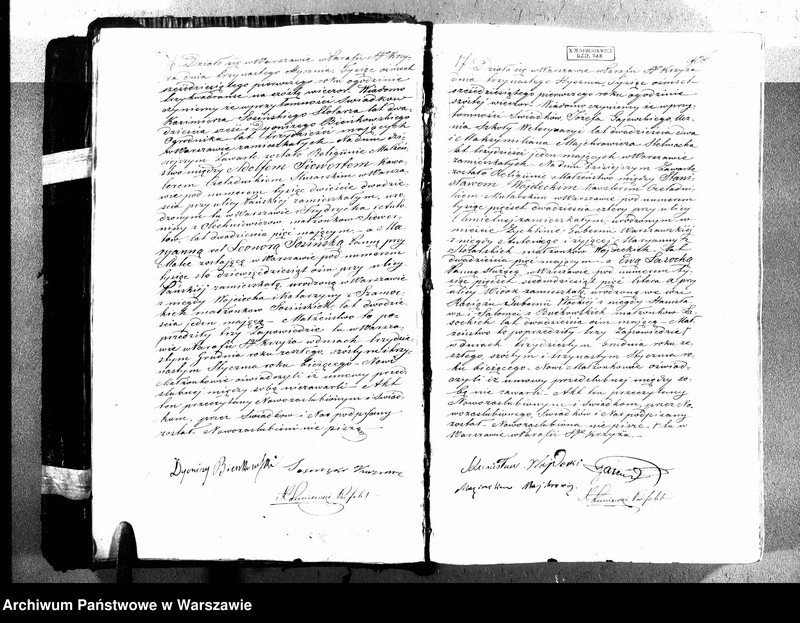 6 Działo się w Warszawie w Parafii Sgo Krzy-
ża dnia trzynastego Stycznia tysiąc ośmset
sześćdziesiątego pierwszego roku o godzinie
wieczór. Wiadomo
czyniemy że w przytomności Świadków
Kazimierza Sosińskiego Stolarza lat dwa-
dzieścia sześć i Dyonizego Bieńkowskiego
Ogrodnika lat trzydzieści mających
w Warszawie zamieszkałych. Na dniu dzi-
siejszym zawarte zostało Religijne Małżeń-
stwo między Adolfem Siewertem Kawa-
lerem Czeladnikiem Ślusarskim w Warsza-
wie pod numerem tysiąc dwieście dwadzie-
ścia przy ulicy Pańskiej zamieszkałym, uro-
dzonym tu w Warszawie z Frydryka i
małżonków Siewer-
tów, lat dwadzieścia pięć mającym, a Ma-
ryanną vel Leonorą Sosińską Panną przy
Matce zostającą w Warszawie pod numerem
tysiąc sto dziewięćdziesiąt ośm przy ulicy
Pańskiej zamieszkałą, urodzoną w Warszawie
z niegdy Wojciecha i Katarzyny z
małżonków Sosińskich, lat dwadzie-
ścia jeden mającą. Małżeństwo to po-
przedziły trzy zapowiedzie tu w Warsza-
wie w Parafii Sgo Krzyża w dniach trzydzie-
stym Grudnia roku zeszłego, szóstym i trzy-
nastym Stycznia roku bieżącego. Nowi
Małżonkowie oświadczyli iż umowy przed-
ślubnej między sobą nie zawarli. Akt
ten przeczytany Nowozaślubionym i Świad-
kom, przez Świadków i Nas podpisany
został. Nowozaślubieni nie piszą.
Dyonizy Bieńkowski Sosiński Kazimierz
17 Działo się w Warszawie w Parafii Sgo Krzyża
dnia trzynastego Stycznia tysiąc ośmset
sześćdziesiątego pierwszego roku o godzinie
szóstej wieczór. Wiadomo czyniemy że w przy-
tomności Świadków Józefa Gajewskiego Ucz-
nia Szkoły Weterynaryi lat dwadzieścia dwa
i Maksymiliana Majchrowicza Stelmacha
lat trzydzieści jeden mających w Warszawie
zamieszkałych. Na dniu dzisiejszym zawarte
zostało Religijne Małżeństwo między Stani-
sławem Wojdeckim Kawalerem Czeladni-
kiem w Warszawie pod numerem
tysiąc pięćset dwadzieścia cztery przy ulicy
Chmielnej zamieszkałym, urodzonym w
mieście Żychlinie Gubernii Warszawskiej
z niegdy Antoniego i żyjącej Maryanny z
małżonków Wojdeckich, lat
dwadzieścia pięć mającym, a Ewą Lasocką
Panną Służącą w Warszawie pod numerem ty-
siąc pięćset siedmdziesiąt pięć litera a przy
ulicy Widok zamieszkałą, urodzoną we wsi
Raciążu Gubernii Płockiej z niegdy Stanisła-
wa i Salomei z małżonków La-
sockich lat dwadzieścia mającą. Mał-
żeństwo to poprzedziły trzy zapowiedzie
w dniach trzydziestym Grudnia roku ze-
szłego, szóstym i trzynastym Stycznia ro-
ku bieżącego. Nowi Małżonkowie oświad-
czyli iż umowy przedślubnej między so-
bą nie zawarli. Akt ten przeczytany
Nowozaślubionym i Świadkom, przez No-
wozaślubionego, Świadków i Nas podpisany
został. Nowozaślubiona nie pisze. tu w
Warszawie w Parafii Sgo Krzyża.
Stanisław Wojdecki
Majchrowicz
Archiwum Państwowe w Warszawie